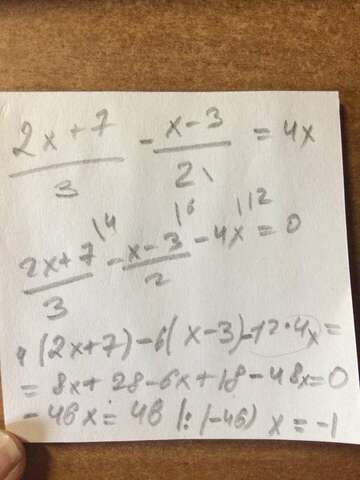 2x+7/3 - x-3/2 = 4x
2x+7/3 |4 - x-3/2 |6 - 4x |12 = 0
4(2x+7)-6(x-3)-12·4x=
=8x+28-6x+18-48x=0
-46x=46 |:(-46) x=-1